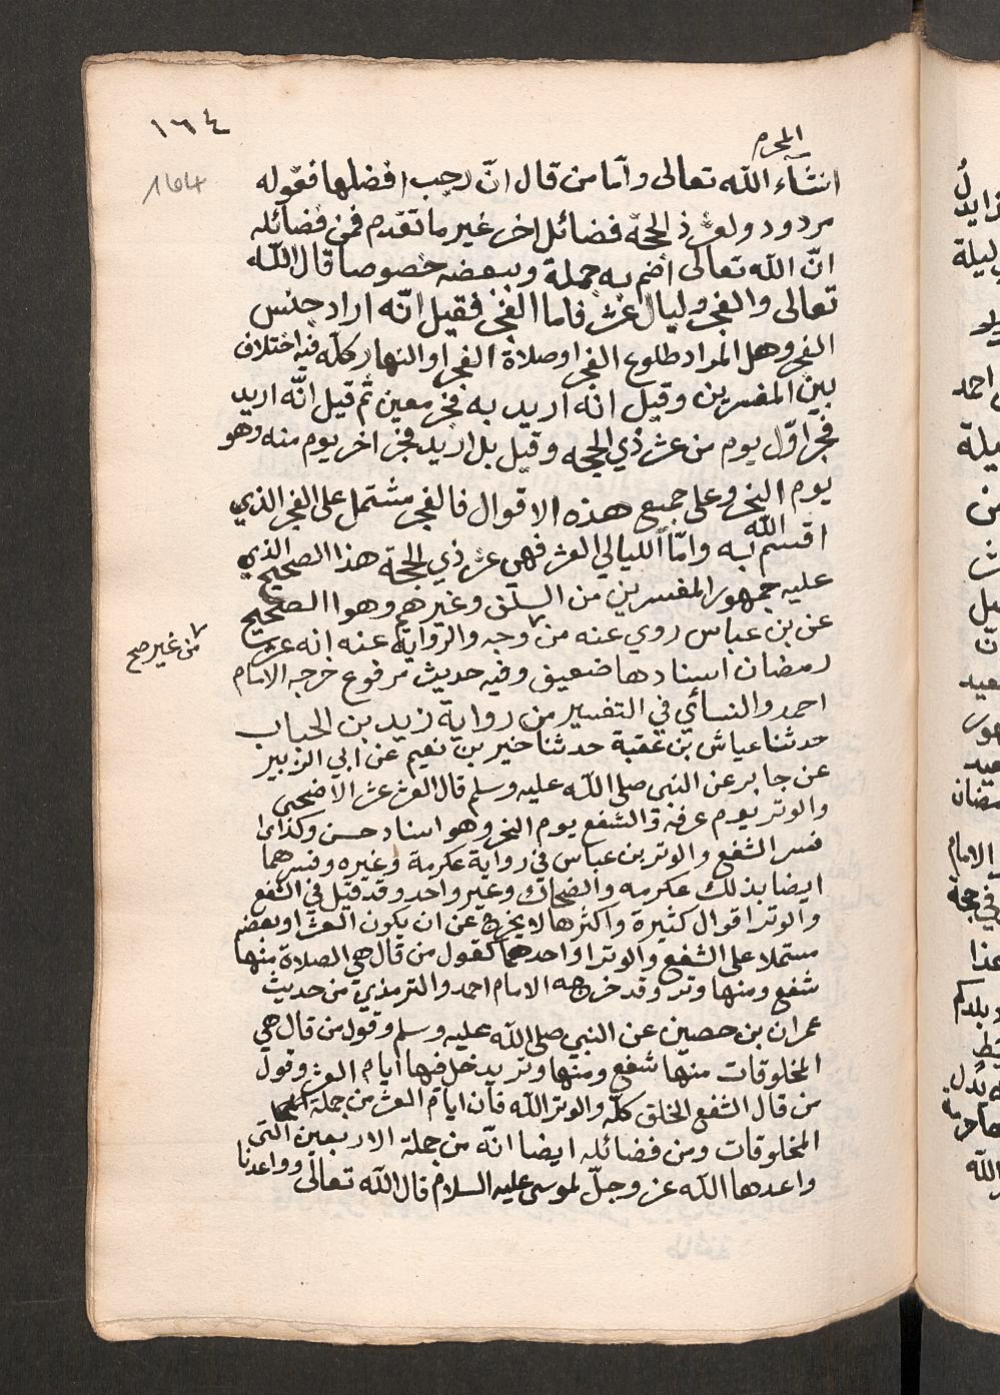 ١٦٤
164
المحرم
انشآء الله تعالى وأما من قال انّ رجب افضلها فقوله
مردود ولعشر ذ الحجة فضائل اخر غير ما تقدم فمن فضائله
انّ الله تعالى اقسم به جملة وببعضه خصوصا قال الله
تعالى والفجر وليال عشر فاما الفجر فقيل انّه اراد جنس
الفجر وهل المراد طلوع الفجر او صلاة الفجر او النهار كلّه فيه اختلاف
بين المفسرين وقيل انه اريد به فجر معين ثم قيل انّه اريد
فجر اوّل يوم من عشر ذي الحجه وقيل بل اريد فجر اخر يوم منه وهو
يوم النحر وعلى جميع هذه الاقوال فالفجر مشتمل على الفجر الذي
اقسم الله به وامّا الليالي العشر فهي عشر ذي الحجة هذا الصحيح الذي
عليه جمهور المفسرين من السلف وغيرهم وهوا الصحيح
عن بن عباس روي عنه من وجه والرواية عنه انه عشر
من غير صح
رمضان اسنادها ضعيف وفيه حديث مرفوع خرجه الامام
احمد والنسائي في التفسير من رواية زيد بن الحباب
حدثنا عياش بن عقبة حدثنا خير بن نعيم عن ابي الزبير
عن جابر عن النبي صلى الله عليه وسلم قال العشر عشر الاضحى
والوتر يوم عرفة والشفع يوم النحر وهو اسناد حسن وكذا
فسر الشفع والوتر بن عباس في رواية عكرمة وغيره وفسرهما
ايضا بذلك عكرمه والضحاك وغير واحد وقد قيل في الشفع
والوتر اقوال كثيرة واكثرها لا يخرج عن ان يكون العشر او بعضه
مشتملا على الشفع والوتر او احدهما كقول من قال هي الصلاة منها
شفع ومنها وتر وقد خرجه الامام احمد والترمذي من حديث
عمران بن حصين عن النبي صلى الله عليه وسلم وقول من قال هي
المخلوقات منها شفع ومنها وتر يدخل فيها ايام العشر وقول
من قال الشفع الخلق كلّه والوتر الله فان ايام العشر من جملة
المخلوقات ومن فضائله ايضا انّه من جملة الاربعين التي
واعدها الله عز وجلّ لموسى عليه السلام قال الله تعالى وواعدنا